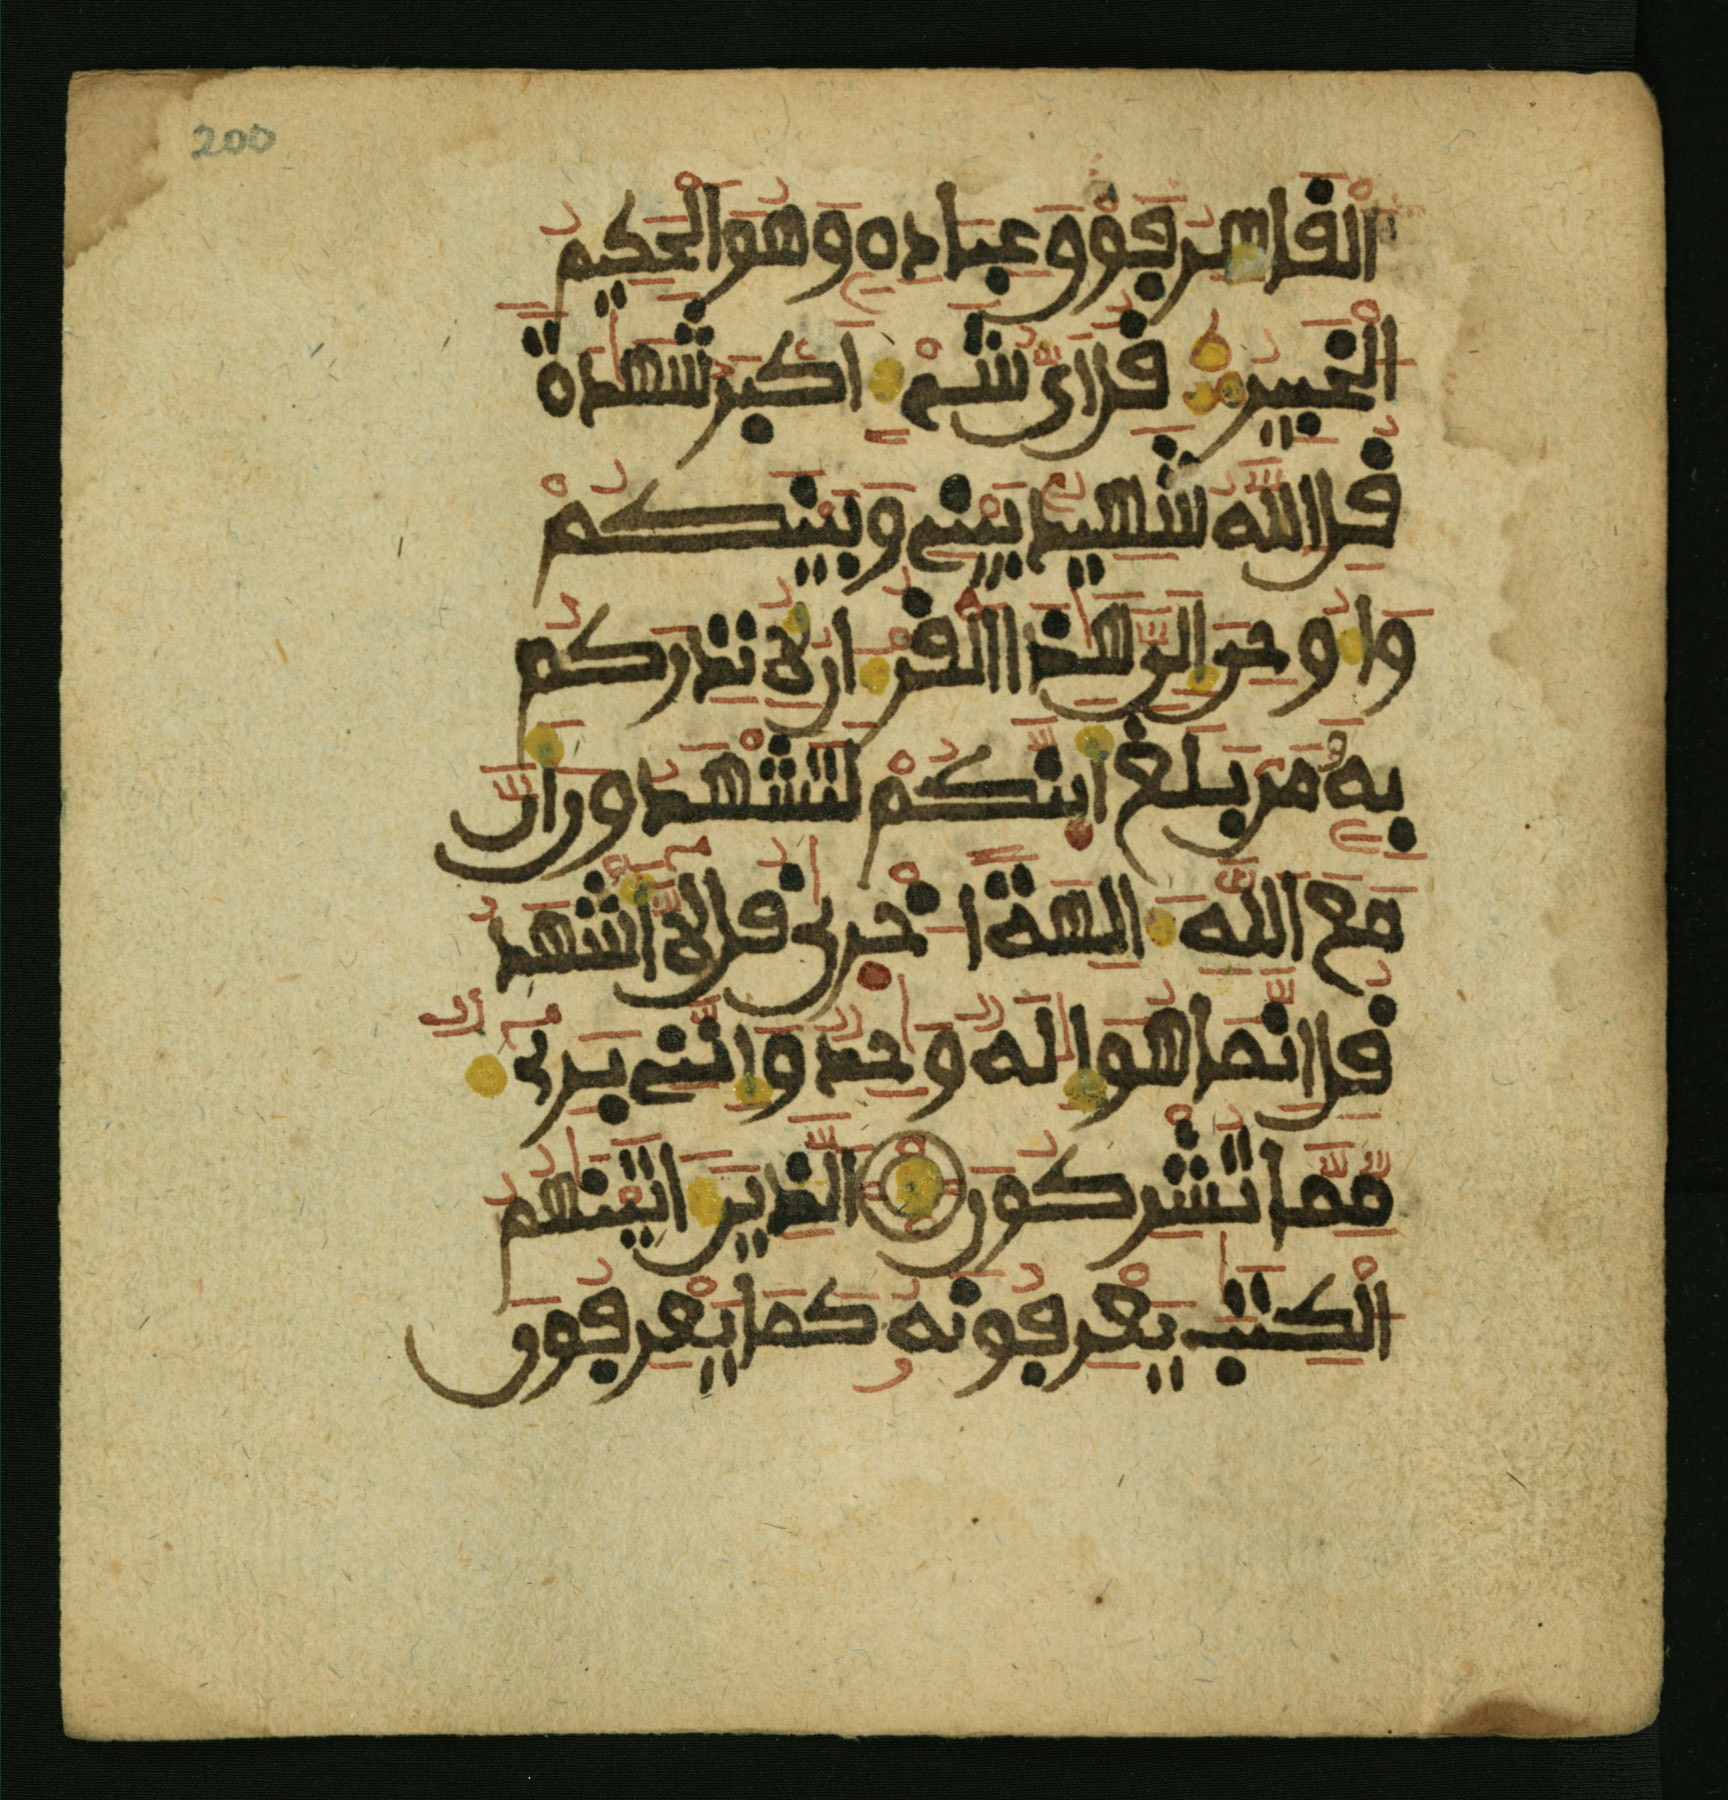 200
الْقَاهِرُ فَوْقَ عِبَادِهِ وَهُوَ الْحَكِيمُ
الْخَبِيرُ قُلْ اَىُّ شَىْءٍ اَكْبَرُ شَهَٰدَةً
قُلِ اللَّهُ شَهِيدٌ بَيْنِى وَبَيْنَكُمْ
وَاُوحِىَ اِلَىَّ هَٰذَا الْقُرْءَانُ لِاُنذِرَكُم
بِهِ وَمَن بَلَغَ اَئِنَّكُمْ لَتَشْهَدُونَ اَنَّ
مَعَ اللَّهِ ءَالِهَةً اُخْرَىٰ قُل لَّا اَشْهَدُ
قُلْ اِنَّمَا هُوَ اِلَٰهٌ وَٰحِدٌ وَاِنَّنِى بَرِىءٌ
مِّمَّا تُشْرِكُونَ الَّذِينَ ءَاتَيْنَٰهُمُ
الْكِتَٰبَ يَعْرِفُونَهُ كَمَا يَعْرِفُونَ